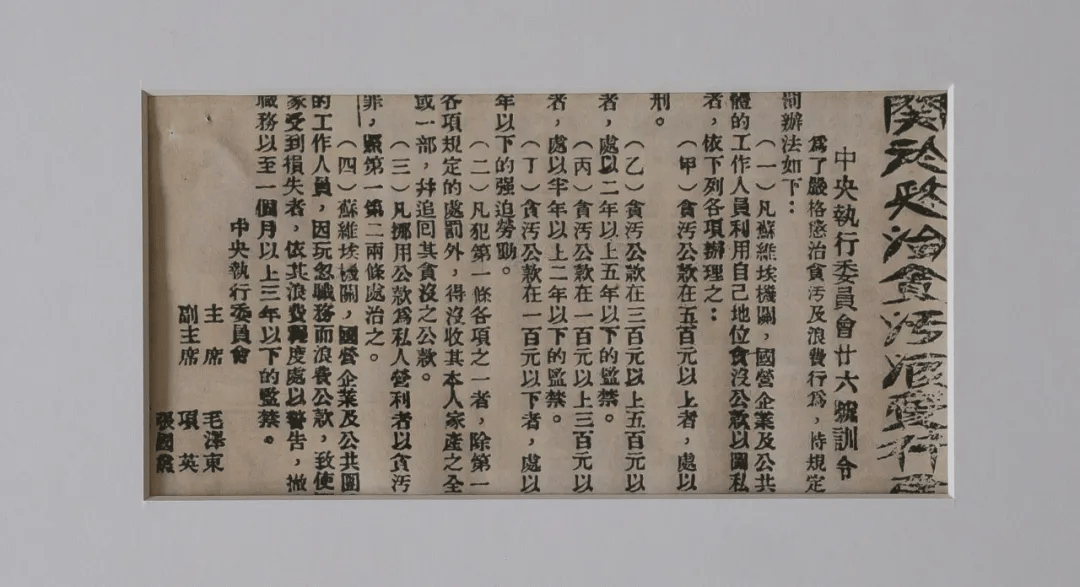 關於懲治貪污浪費行爲
中央執行委員會廿六號訓令
爲了嚴格懲治貪污及浪費行爲，特規定
辦法如下：
（一）凡蘇維埃機關，國營企業及公共
體的工作人員利用自己地位貪沒公款以圖私
者，依下列各項辦理之：
（甲）貪污公款在五百元以上者，處以
刑。
（乙）貪污公款在三百元以上五百元以
者，處以二年以上五年以下的監禁。
（丙）貪污公款在一百元以上三百元以
者，處以半年以上二年以下的監禁。
（丁）貪污公款在一百元以下者，處以
年以下的强迫勞動。
（二）凡犯第一條各項之一者，除第一
各項規定的處罰外，得沒收其本人家產之全
或一部，幷追回其貪沒之公款。
（三）凡挪用公款爲私人營利者以貪污
罪，照第一第二兩條處治之。
（四）蘇維埃機關，國營企業及公共團
的工作人員，因玩忽職務而浪費公款，致使
家受到損失者，依其浪費程度處以警告，撤
職務以至一個月以上三年以下的監禁。
中央執行委員會
主席 毛澤東
副主席 項英
張國燾